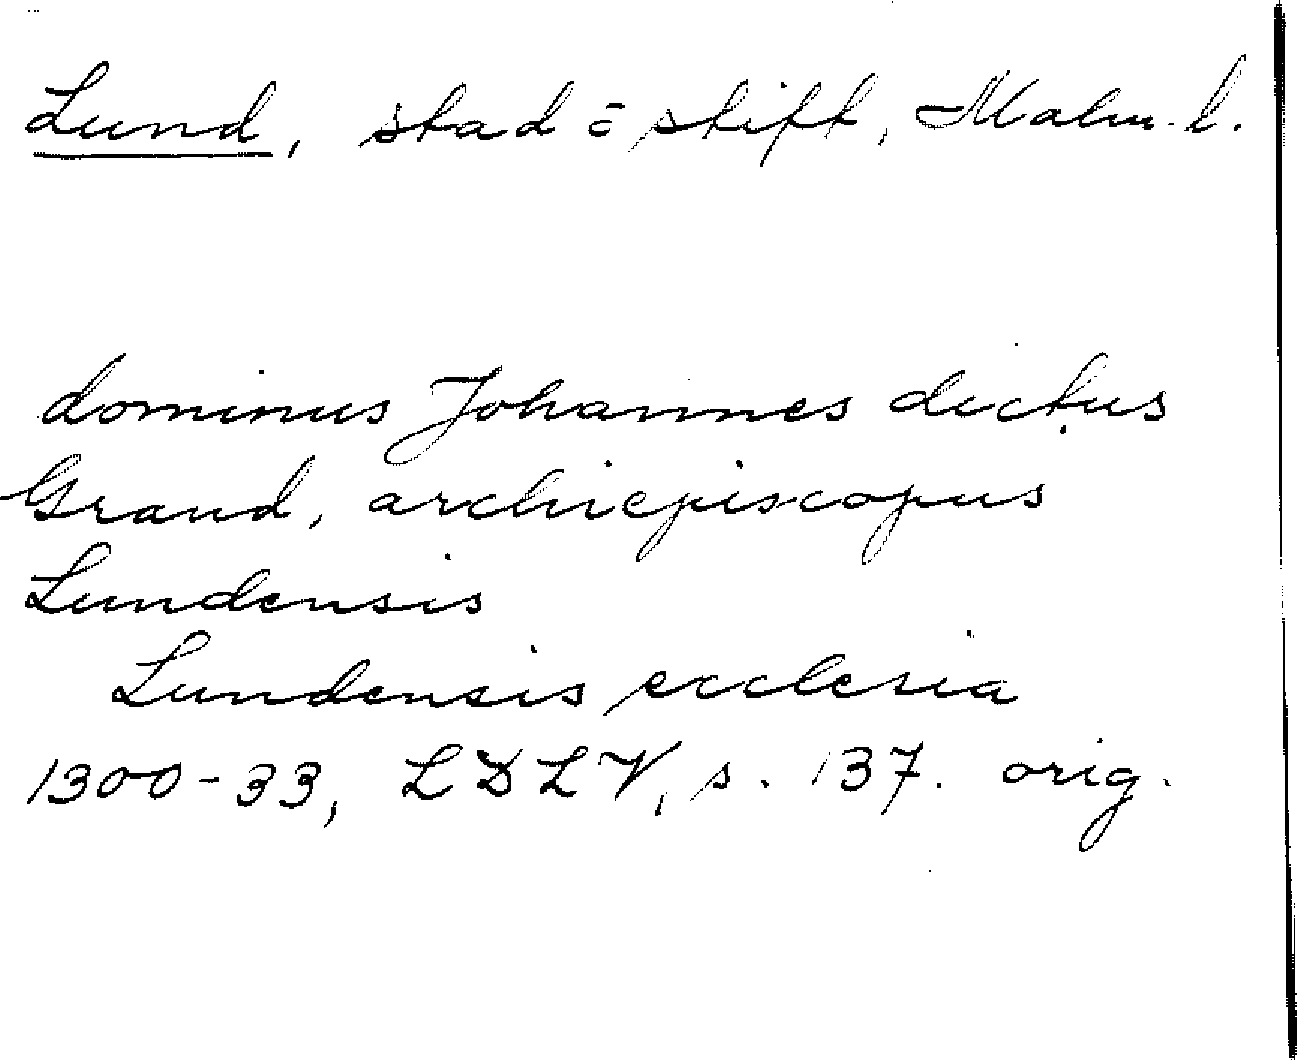 Lund, stad o stift, Malm. l.
dominus Johannes dictus
Grand, archiepiscopus
Lundensis
Lundensis ecclesia
1300-33, LDLV, s. 137. orig.